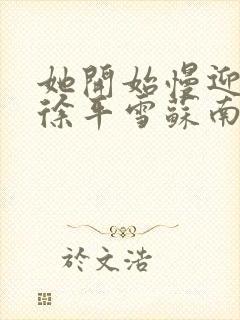 她開始慢迎
徐平雪蘇南
於文浩